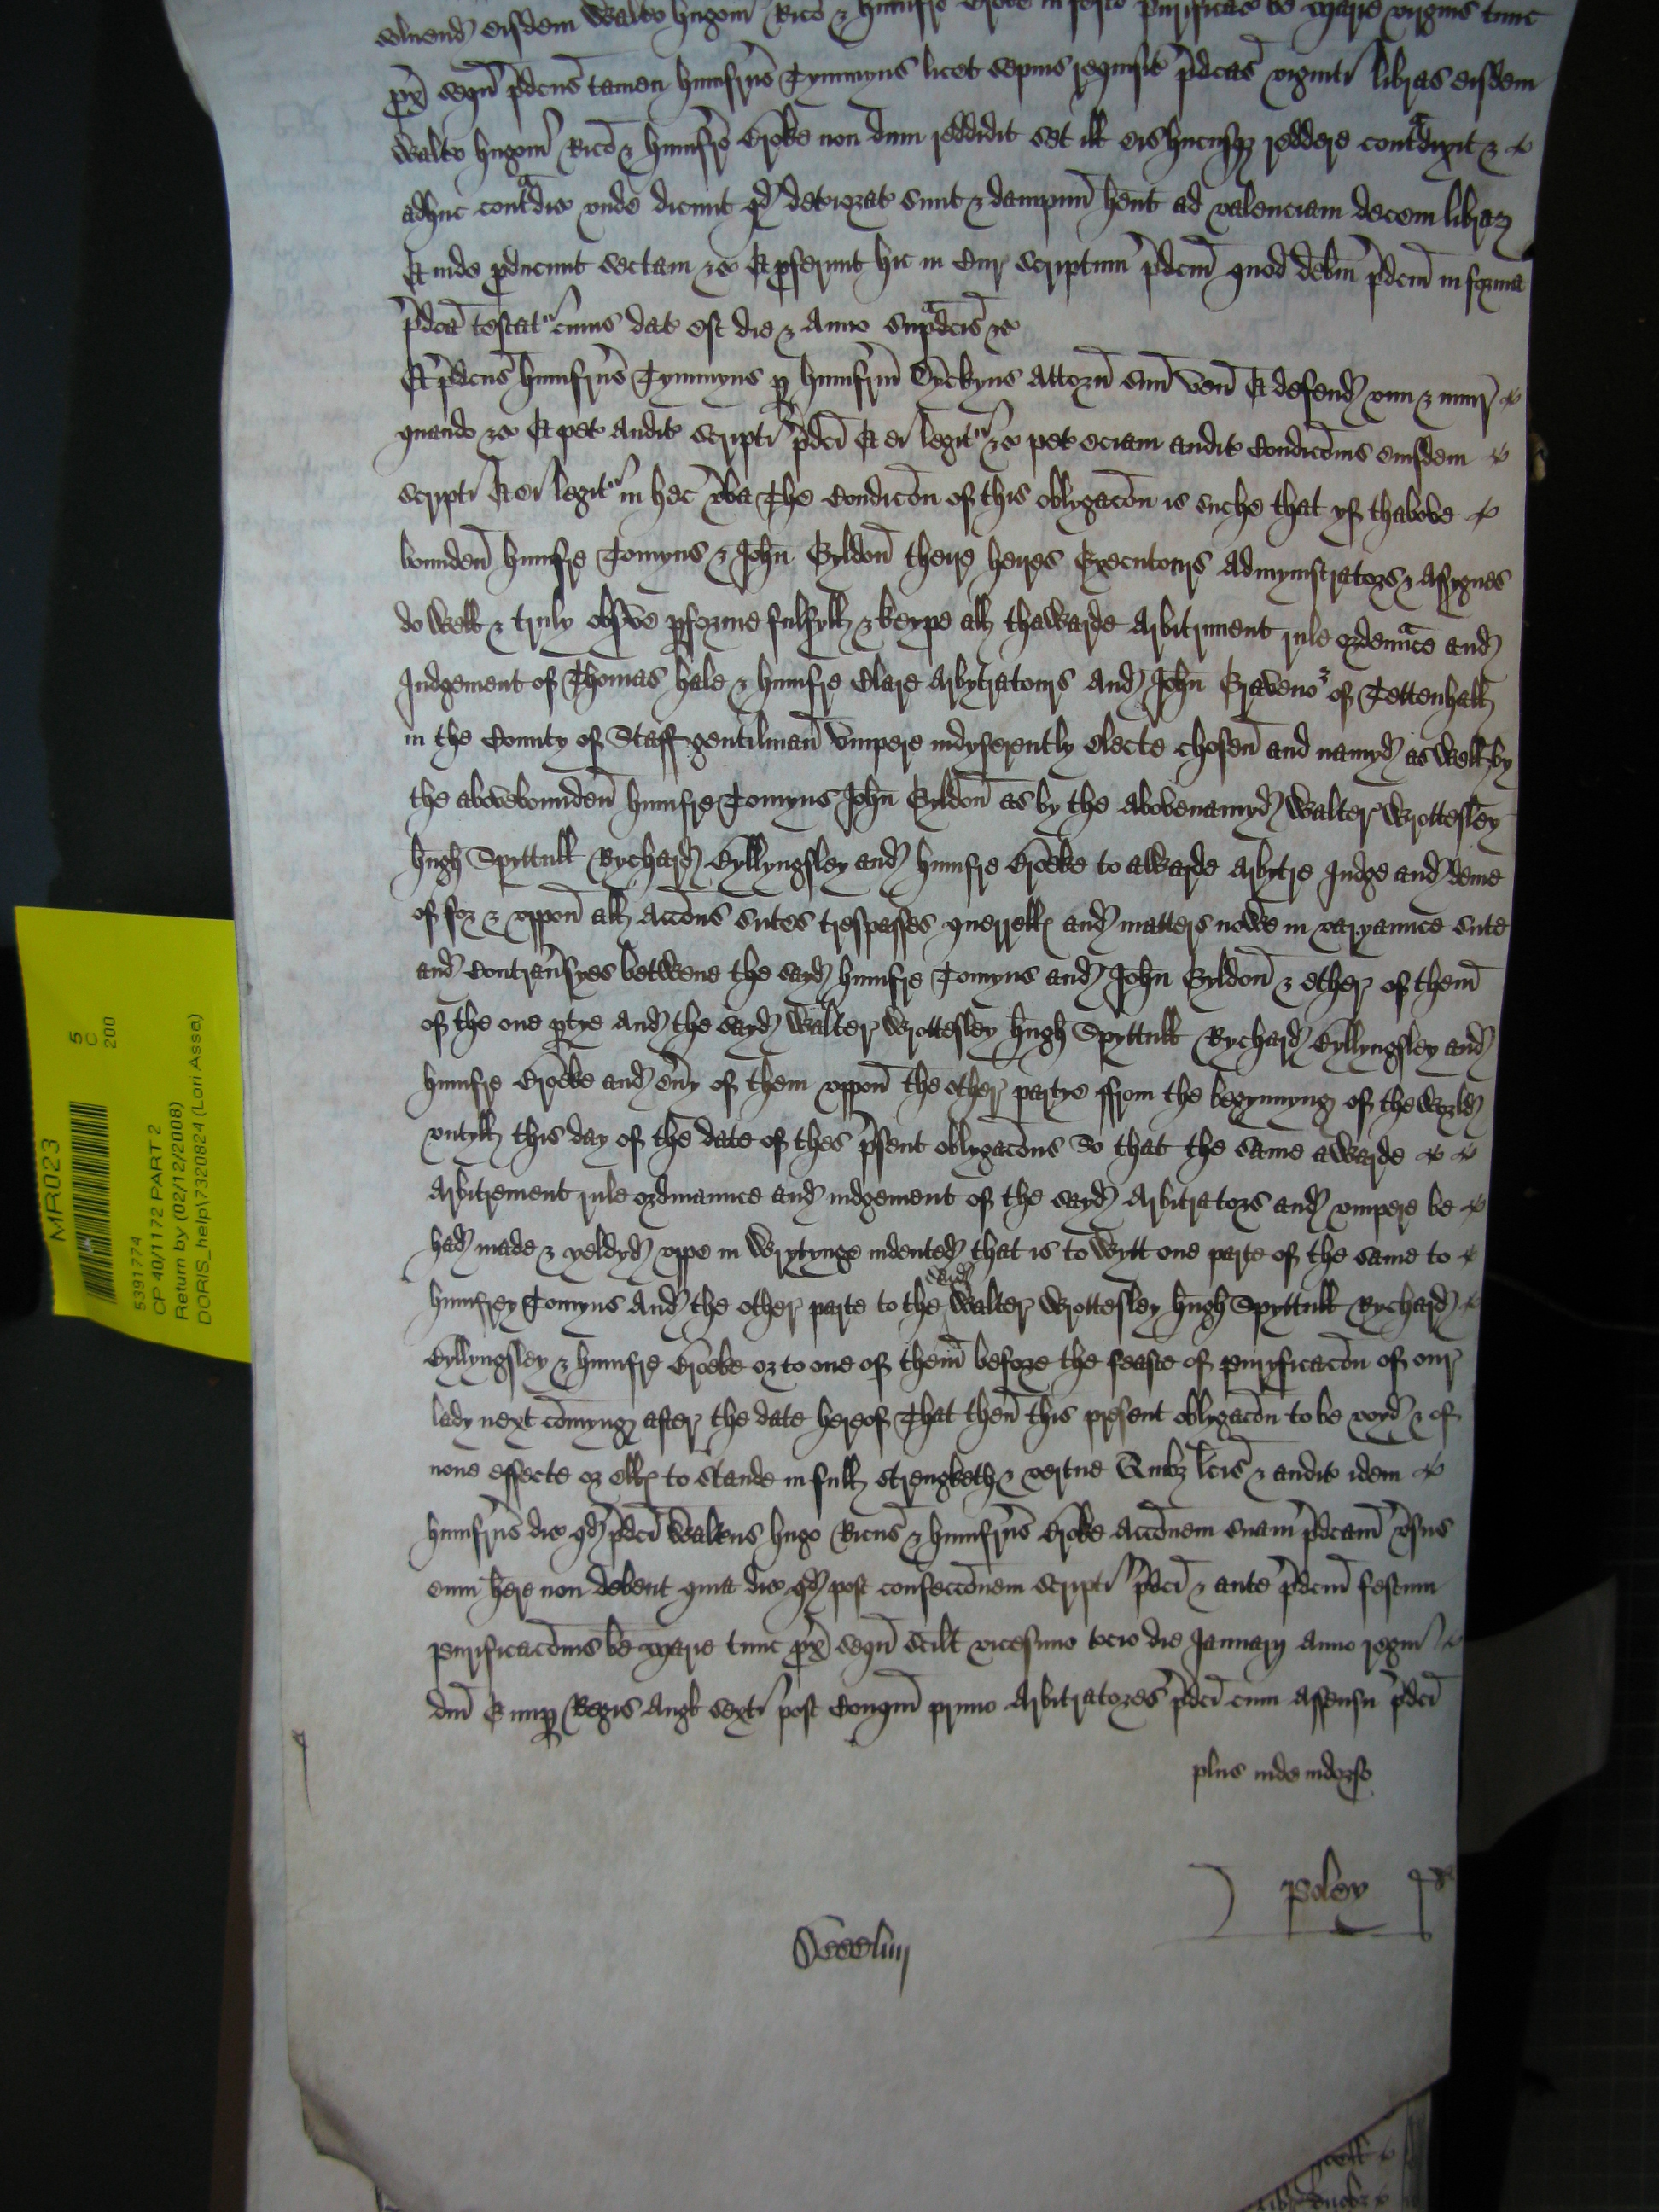 solvend eisdem Waltō hugoni Ricō & humfrō Croke in festo Purificac be Marie virginis tunc
px sequ pdcus tamen humfrus Tymmyns licet sepius requisit pdcas viginti libras eisdem
Walto hugoni Rico & humfro Croke non dum reddidit set ill eis hucusq reddere contradixit &
adhuc contradic unde dicunt qd deteriorat sunt & dampnu hent ad valenciam decem librar
Et inde producunt sectam &c Et pferunt hic in Cur scriptum pdcm quod debm pdcm in forma
pdca testatr cuius dat est die & Anno supradcis &c
Et pdcus humfrus Tymmyns p humfrm Dyckyns Attorn suu ven Et defend vim & iniur
quando &c Et pet auditu scripti pdci Et ei legitr &c pet eciam auditu Condicois eiusdem
scripti Et ei legitr in hec vba The Condicon of this oblygacon is suche that yf thabove
bounden humfre Tomyns & John Gyldon there heyres Executours Admynistrators & Assygnes
do well & truly obsve pforme fulfyll & keype all thawarde Arbitrment rule ordenance and
Judgement of Thomas hale & humfre Clare Arbytratours And John Gravenor of Tettenhall
in the County of Staff gentilman Umpere indyferently electe chosen and namyd as well by
the abovebounden humfre Tomyns John Gyldon as by the Abovenamyd Walter Wrottesley
hugh Spyttull Rychard Cyllyngsley and humfre Crocke to awarde Arbytre Judge and deme
of for & uppon all Accons sutes trespasses querrells and matters nowe in varyaunce sute
and Contravsyes betwene the sayd humfre Tomyns and John Gyldon & ether of them
of the one ptye And the sayd Walter Wrottesley hugh Spyttull Rychard Cyllyngsley and
humfre Crocke and evy of them uppon the other partye ffrom the begynnyng of the world
untyll this day of the date of thes psent oblygacons So that the same awarde
Arbitrement rule ordinaunce and iudgement of the sayd Arbitrators and umpere be
had made & yeldyd uppe in Wrytynge indented that is to Wytt one parte of the same to
humfrey Tomyns And the other parte to the said Walter Wrottesley hugh Spyttull Rychard
Cyllyngsley & humfre Crocke or to one of them before the feaste of puryficacon of our
lady next comyng after the date hereof That then this present oblygacon to be voyd & of
none effecte or ells to stande in full strengketh & vertue Quibz lcis & audit idem
humfrus dic qd pdci Walterus hugo Ricus & humfrus Croke Accoem suam pdcam vsus
eum here non debent quia dic qd post confeccoem scripti pdci & ante pdcm festum
Purificacois be Marie tunc px sequ scilt vicesimo tercio die Januarij Anno regni
dni E nup Regis Angl sexti post Conqm primo Arbitratores pdci cum assensu pdci
plus inde indorso
Poley
MR023
5
C
200
5391774
CP 40/1172 PART 2
Return by (02/12/2008)
DORIS_help\7320824 (Lori Assa)